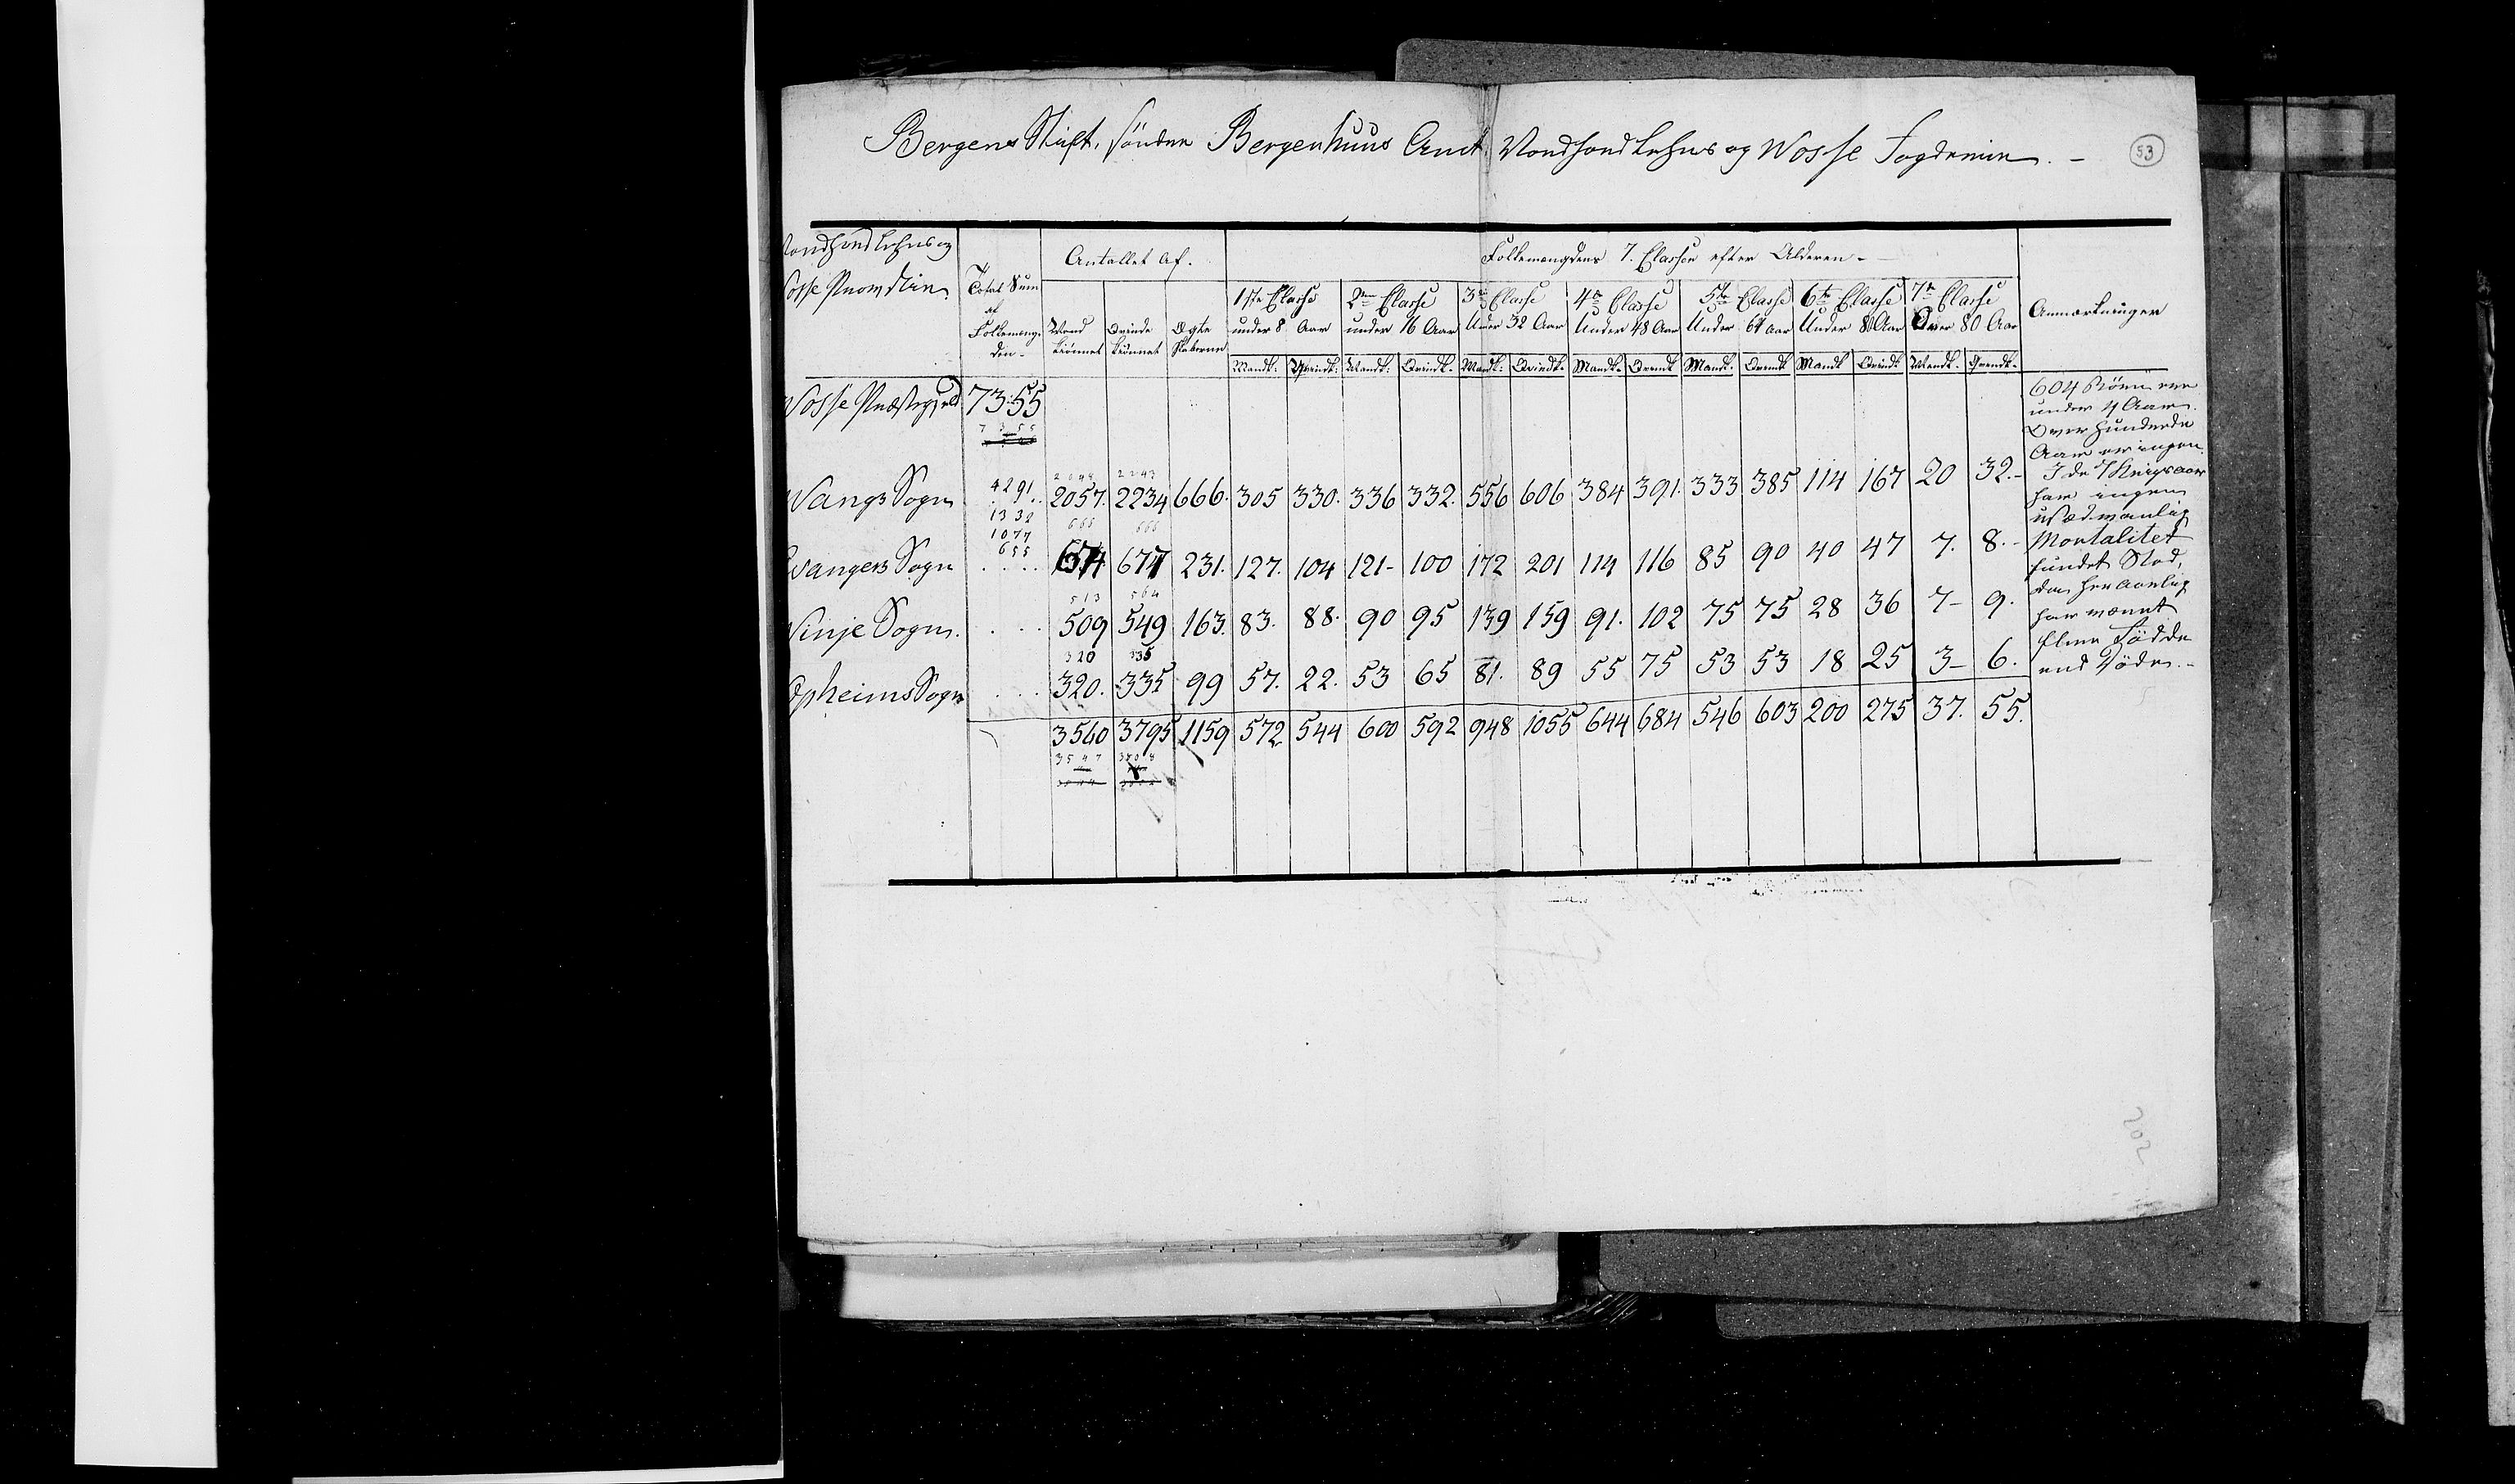 Bergens Stift, sönder Bergenhuus Amt. Nordhord Lehns og Wosse Fogderier. –
53
Nordhord Lehns og Total Sum Antallet Af. Folkemængdens 7. Classer efter Alderen – Anmærkninger
Vosse Provstie. af Folkemæng- den – Mand kiönnet Qvinde kiönnet Ægte Paterne 1ste Classe under 8 Aar 2den Classe under 16 Aar 3de Classe Under 32 Aar 4de Classe Under 48 Aar 5te Classe Under 64 Aar 6te Classe Under 80 Aar 7de Classe Over 80 Aar
Mandk: Qvindk: Mandk: Qvindk. Mandk: Qvindk. Mandk. Qvindk Mandk. Qvindk Mandk Qvindk Mandk. Qvindk.
Wosse Præstegield 73:55
7355
2048 2243
Wangs Sogn 4291 2057. 2234 666. 305 330. 336 332. 556 606 384 391. 333 385 114 167 20 32. –
1332 666 666
1077
655
Evangers Sogn .... 674 677 231. 127. 104 121 – 100 172 201 114 116 85 90 40 47 7. 8. –
513 564
Vinje Sogn. ... 509 549 163. 83. 88. 90 95 139 159 91. 102 75 75 28 36 7 – 9.
320 335
Opheims Sogn ... 320. 335 99 57. 22. 53 65 81. 89 55 75 53 53 18 25 3 – 6.
3560 3795 1159 572 544 600 592 948 1055 644 684 546 603 200 275 37. 55.
3547 3808
604 Börn ere
under 4 Aar.
Over hunderde
Aar er ingen.
I de 7 Krigsaar
har ingen
usædvanlig
Mortalitet
fundet Sted,
der her aarlig
har været
flere födde
end döde. –
502